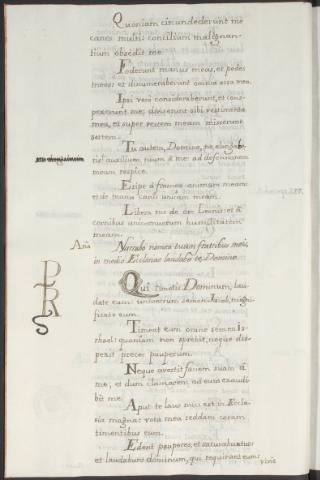 Quoniam circundederunt me
canes multi: concilium malignan-
tium obsedit me.
Foderunt manus meas, et pedes
meos: et dinumeraberunt omnia ossa mea.
Ipsi vero consideraberunt, et cons-
pexerunt me; diviserunt sibi vestimenta
mea, et super vestem meam miserunt
sortem.
Tu autem, Domine, ne elongabe-
ris auxilium tuum á me: ad defensionem
meam respice.
Eripe á framea animam meam:
et de manu canis unicam meam.
Libera me de ore Leonis: et á
cornibus unicornuum humilitatem
meam.
Aña Narrabo nomen tuum fratribus meis,
in medio Ecclesiae laudabo te, Domine.
P
R
S
Qui timetis Dominum, lau-
date eum: universum semen Jacob, magni-
ficate eum.
Timeat eum omne semen Is-
rhael: quoniam non sprebit, neque dis-
pexit preces pauperum.
Neque avertit faciem suam á
me; et dum clamarem ad eum exaudi-
bit me.
Aput te laus mihi est in Eccle-
sia magna: vota mea reddam coram
timentibus eum.
Edent pauperes, et saturabuntur:
et laudabunt dominum, qui requirunt eum: